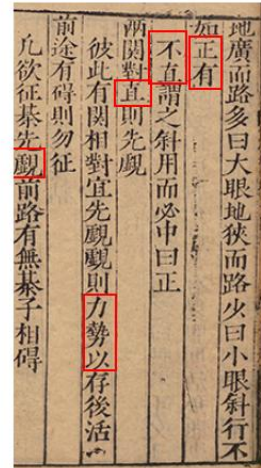 地廣而路多曰大眼地狹而路少曰小眼斜行不
如正有
不直謂之斜用而必中曰正
兩関對直則先覷
彼此有関相對宜先覷覷則力勢以存後活
前途有碍則勿征
凡欲征棊先覷前路有無棊子相碍